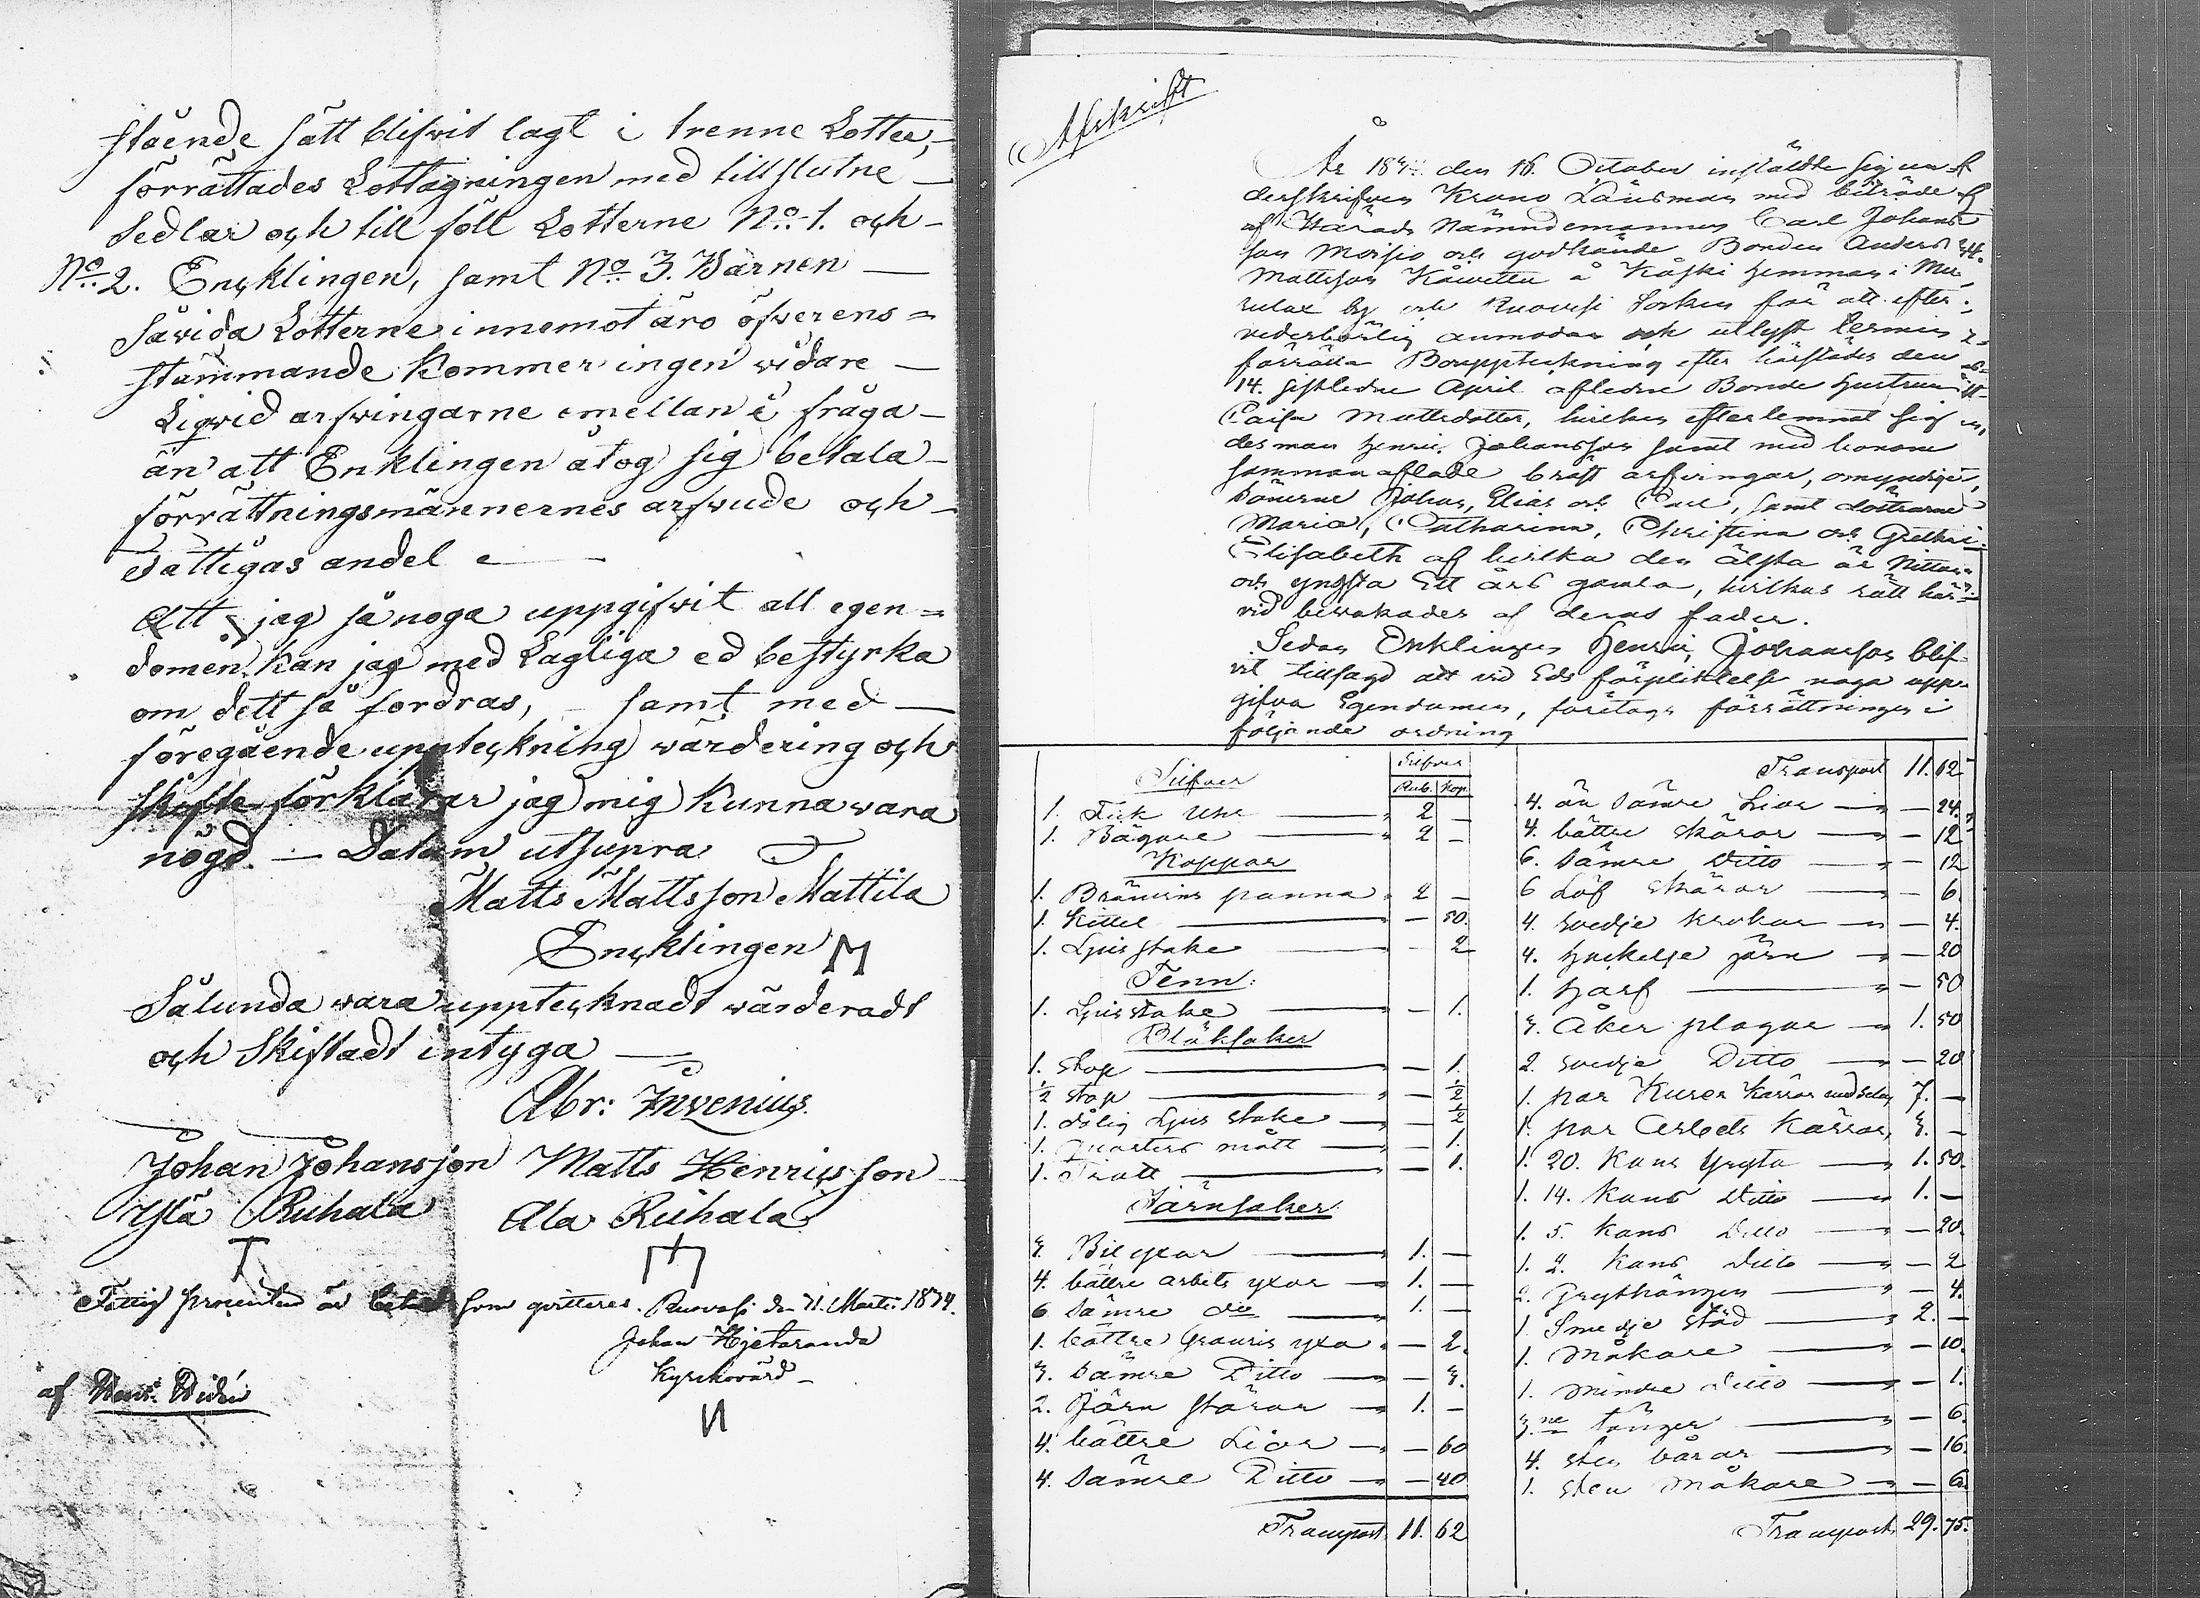 stående sätt blifwit lagt i trenne Lotter,
förrättades Lottagningen med tillslutne
Sedlar och till föll Lotterne No 1. och
No 2. Encklingen, samt No 3. Barnen
Såvida Lotterne innemot äro öfverens=
stämmande Kommer ingen vidare
Liqvid arfwingarne emellan i fråga
än att Enklingen åtog sig betala
förrättningsmännernes arfwude och
Fattigas andel
Att jag så noga uppgifwit all egen=
domen, kan jag med Lagliga ed bestyrka
om dett så fordras, samt med
föregående uppteckning wärdering och
skifte förklarar jag mig Kunna wara
nögd. Datum utsupra
Matts Mattsson Mattila
Encklingen
Sålunda wara upptecknadt wärderadt
och Skiftadt intyga
Abr: Invenius
Johan Johansson Matts Henricsson
Ylä Ruhala Ala Ruhala
Fattig procenten är betalt som qvitteras. Ruovesi den 21. Marti 1874.
Johan Hjetaranda
Kyrkovärd
af
Afskrift
År den 16. October inställdte sig un
derskrifven Krono Länsman med biträde
af Härads Nämndemannen Carl Johans
son Moisio och godkände Bonden Anders
Mattsson å Käski hemman i
by och Ruovesi Socken för att efter
vederbörlig anmodan och utlyst termin
förrätta Bouppteckning efter härstädes den
14. sistledne April aflidne Bonde hustrun
Caisa Mattsdotter, hvilken efterlemnat sig
des man Henric Johansson samt med honom
samman aflade bröst arfvingar, omyndige
Sönerne Johan, Elias och Carl, samt döttrarne
Maria, Catharina, Christina och
Elisabeth af hvilka den älsta är Nitton
och yngsta Ett års gamla, hvilkas rätt här
vid bevakades af deras fader.
Sedan Enklingen Henric Johansson blif
vit tillsagd att vid Eds förpliktelse noga upp
gifva Egendomen, företogs förrättningen i
följande ordning
Silfver
Rub. Kop.
Silfver
1. Fick Uhr 2 —
1. Bägare 2 —
Koppar
1. Brännvins panna 2 —
1. Kittel — 50.
1. Ljusstake — 2
Tenn.
1. Ljusstake — 1.
Bläksaker
1. Stop — 1.
½ stop — ½
1. dålig Ljus stake — ½
1. quarters mått — 1.
1. Tratt — 1.
Järnsaker
3. Bil yxor 1. —
4. bättre arbets yxor 1. —
6 sämre do 1. —
1. bättre yxa — 2.
3. sämre Ditto — 3.
2. Järn störar 1. —
4. bättre Liar — 60
4. sämre Ditto — 40
Transport 11. 62
Transport 11. 62
4. än sämre Liar — 24.
4. bättre skäror — 12
6. sämre Ditto — 12
6 Löf skäror — 6.
4. svedje krokar — 4.
4. hackelse järn — 20
1. harf — 50
3. Åker plogar 1. 50
2. svedje Ditto — 20
1. par Kurer Kärror med selar 7. —
1. par Arbets Kärror, 3. —
1. 20. Kans Gryta 1. 50.
1. 14. Kans Ditto 1. —
1. 5. kans Ditto — 20.
1. 2. kans Ditto — 2
2. Grythängen — 4.
1. Smedje städ 2. —
1. Måkare — 10.
1. Mindre Ditto — 1.
3ne tänger — 6.
4. sten bårar — 16.
1. sten Måkare — 6.
Transport 29. 75.